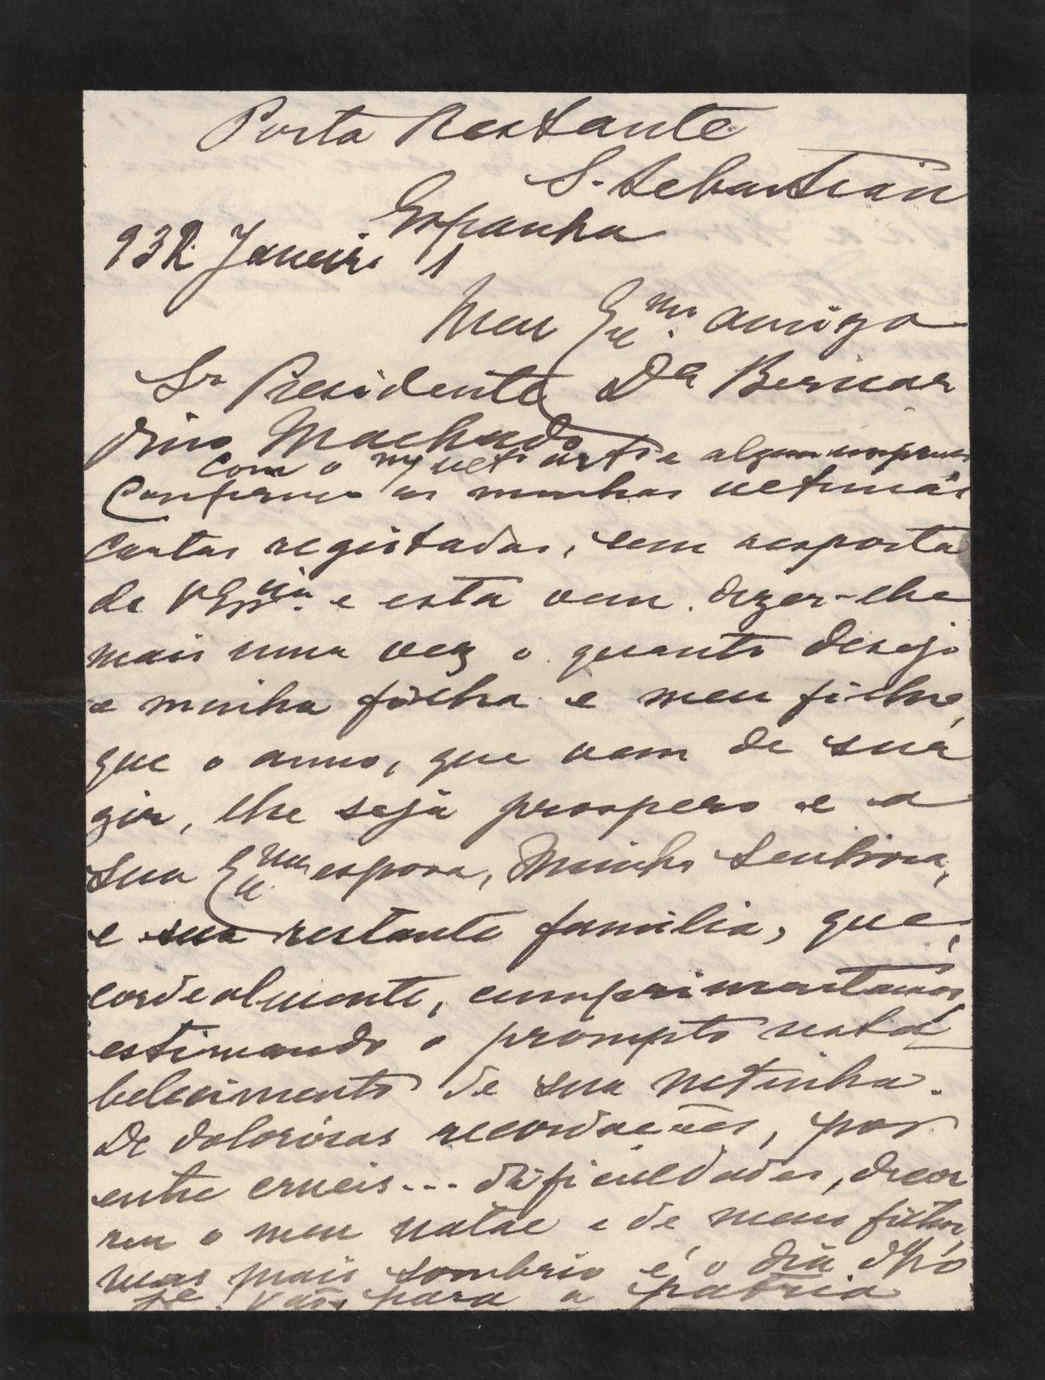 Posta Restante
S. Sebastian
Espanha
932 Janeiro 1
Meu Exmo amigo
Sr Presidente Dr Bernar
dino Machado
com o meu ultº artº e algum impresso
Confirmo as minhas ultimas
cartas registadas, sem resposta
de V Excia e esta vem dizer-lhe
mais uma vez o quanto desejo
e minha filha e meu filho,
que o anno, que vem de sur
gir, lhe seja prospero e a
sua Exma esposa, Minha Senhora,
e sua restante familia, que,
cordealmente, cumprimentamos,
estimando o prompto resta
belecimento de sua netinha.
De dolorosas recordações, por
entre crueis... dificuldades, decor
reu o meu natal e de meus filhos,
mas mais sombrio é o dia d'hó
je. Vão para a patria